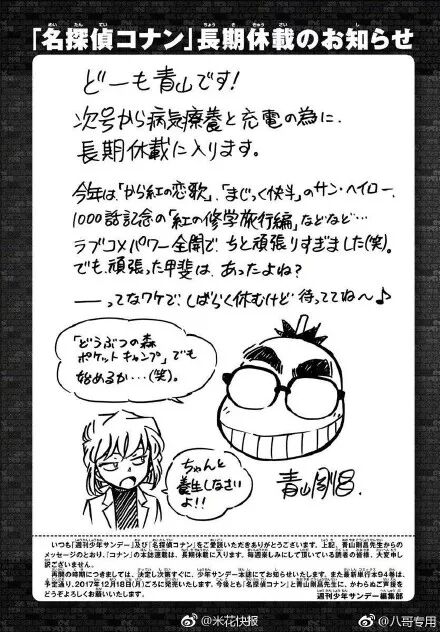 「名探偵コナン」長期休載のお知らせ
どーも青山です!
次号から病気療養と充電の為に、
長期休載に入ります。
今年は、「から紅の恋歌」、「まじっく快斗」のサン・ヘイロー、
1000話記念の「紅の修学旅行編」などなど…
ラブコメパワー全開で、ちと頑張りすぎました(笑)。
でも、頑張った甲斐は、あったよね?
——ってなワケで、しばらく休むけど待っててね〜♪
「どうぶつの森
ポケットキャンプ」でも
始めるか…(笑)。
ちゃんと
養生しなさい
よ!!
青山剛昌
いつも「週刊少年サンデー」及び「名探偵コナン」をご愛読いただきありがとうございます。上記、青山剛昌先生からの
メッセージのとおり、「コナン」の本誌連載は、長期休載に入ります。毎週楽しみにして頂いている読者の皆様、大変申し
訳ございません。
再開の時期につきましては、決定し次第すぐに、少年サンデー本誌にてお知らせいたします。また最新単行本94巻は、
予定通り、2017年12月18日(月)ごろに発売いたします。今後とも「名探偵コナン」と青山剛昌先生に、かわらぬご声援を
どうぞよろしくお願いいたします。
週刊少年サンデー編集部
@米花快报
@八哥专用